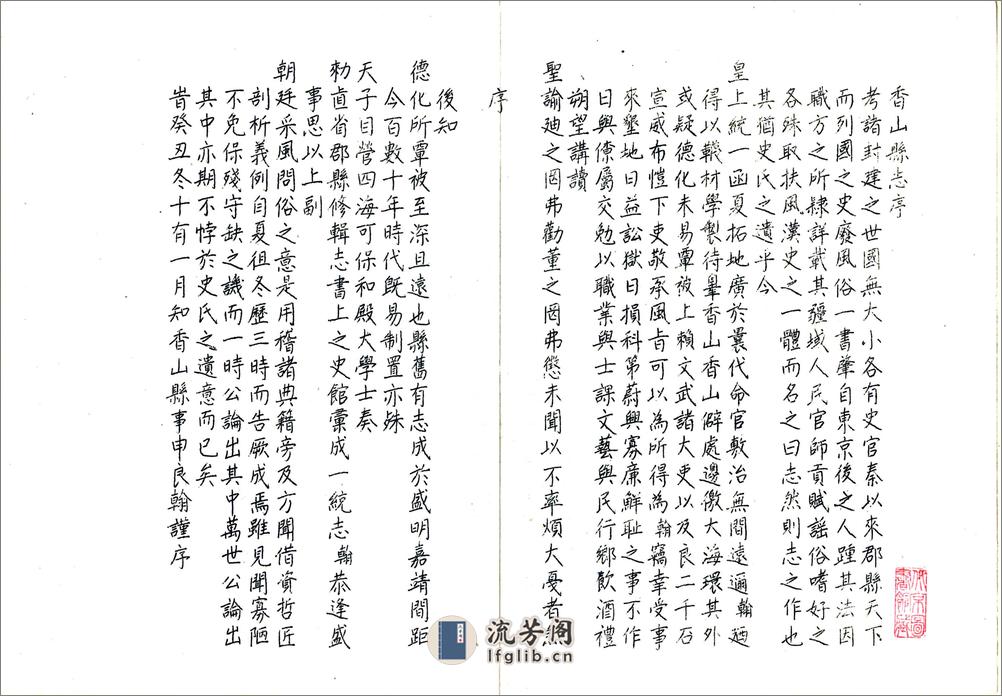 香山縣志序
考諸封建之世國無大小各有史官秦以來郡縣天下
而列國之史廢風俗一書肇自東京後之人踵其法因
職方之所隸詳載其疆域人民官師貢賦謡俗嗜好之
各殊取扶風漢史之一體而名之曰志然則志之作也
其猶史氏之遺乎今
皇上統一函夏拓地廣於曩代命官敷治無間遠邇翰廼
得以輇材學製待辠香山香山僻處邊徼大海環其外
或疑德化未易覃被上賴文武諸大吏以及良二千石
宣威布愷下吏敬承風旨可以為所得為翰竊幸受事
來墾地日益訟獄日損科第蔚興寡廉鮮耻之事不作
日與僚屬交勉以職業與士課文藝與民行鄉飲酒禮
朔望講讀
聖諭廸之罔弗勸董之罔弗懲未聞以不率煩大憂者
序
後知
德化所覃被至深且遠也縣舊有志成於盛明嘉靖間距
今百數十年時代既易制置亦殊
天子目營四海可保和殿大學士奏
勑直省郡縣修輯志書上之史館彙成一統志翰恭逢盛
事思以上副
朝廷采風問俗之意是用稽諸典籍旁及方聞借資哲匠
剖析義例自夏徂冬歷三時而告厥成焉雖見聞寡陋
不免保殘守缺之譏而一時公論出其中萬世公論出
其中亦期不悖於史氏之遺意而已矣
旹癸丑冬十有一月知香山縣事申良翰謹序
流芳阁
lfglib.cn